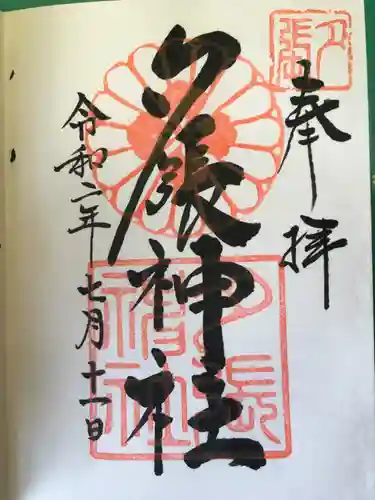 奉拝
夕張神社
令和二年七月十一日
夕張
神社